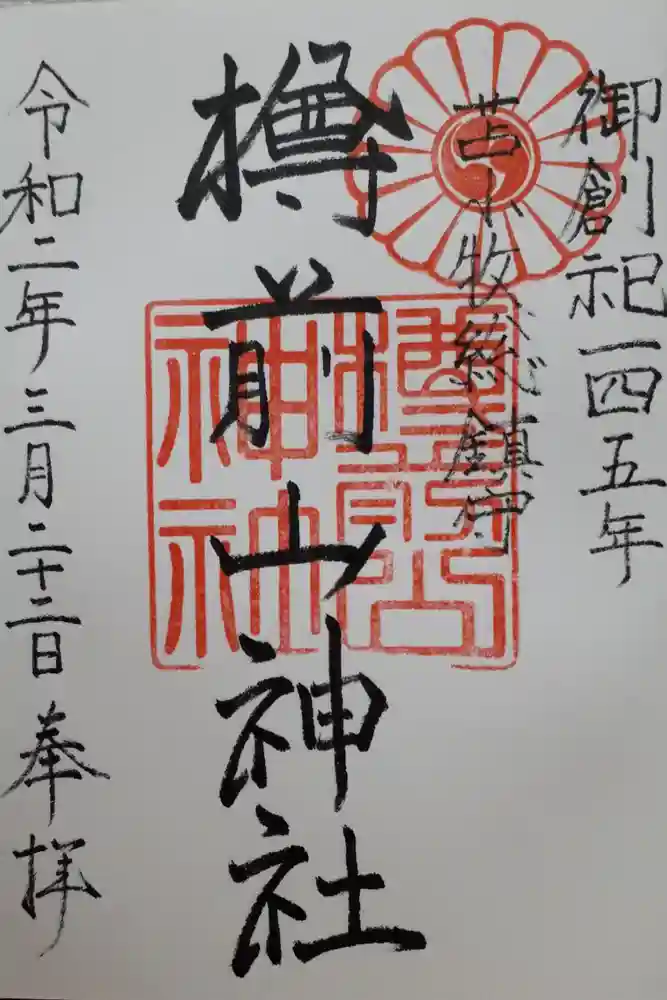 御創祀一四五年
苫小牧総鎮守
樽前山神社
令和二年三月二十二日奉拝